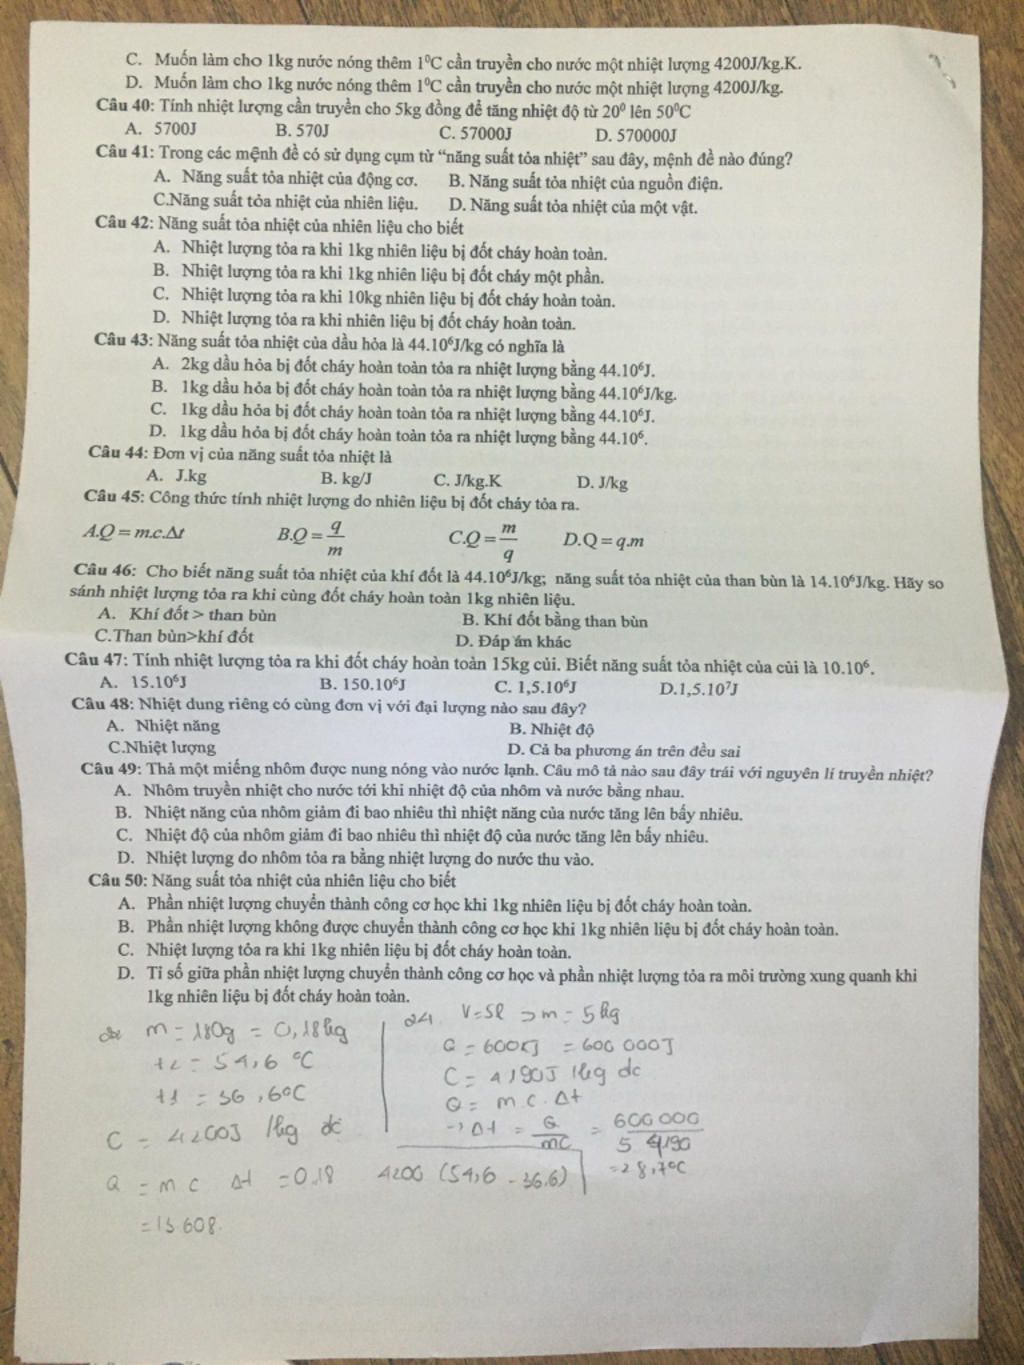 C. Muốn làm cho 1kg nước nóng thêm 1⁰C cần truyền cho nước một nhiệt lượng 4200J/kg.K.
D. Muốn làm cho 1kg nước nóng thêm 1⁰C cần truyền cho nước một nhiệt lượng 4200J/kg.
Câu 40: Tính nhiệt lượng cần truyền cho 5kg đồng để tăng nhiệt độ từ 20⁰ lên 50⁰C
A. 5700J B. 570J C. 57000J D. 570000J
Câu 41: Trong các mệnh đề có sử dụng cụm từ “năng suất tỏa nhiệt” sau đây, mệnh đề nào đúng?
A. Năng suất tỏa nhiệt của động cơ. B. Năng suất tỏa nhiệt của nguồn điện.
C.Năng suất tỏa nhiệt của nhiên liệu. D. Năng suất tỏa nhiệt của một vật.
Câu 42: Năng suất tỏa nhiệt của nhiên liệu cho biết
A. Nhiệt lượng tỏa ra khi 1kg nhiên liệu bị đốt cháy hoàn toàn.
B. Nhiệt lượng tỏa ra khi 1kg nhiên liệu bị đốt cháy một phần.
C. Nhiệt lượng tỏa ra khi 10kg nhiên liệu bị đốt cháy hoàn toàn.
D. Nhiệt lượng tỏa ra khi nhiên liệu bị đốt cháy hoàn toàn.
Câu 43: Năng suất tỏa nhiệt của dầu hỏa là 44.10⁶J/kg có nghĩa là
A. 2kg dầu hỏa bị đốt cháy hoàn toàn tỏa ra nhiệt lượng bằng 44.10⁶J.
B. 1kg dầu hỏa bị đốt cháy hoàn toàn tỏa ra nhiệt lượng bằng 44.10⁶J/kg.
C. 1kg dầu hỏa bị đốt cháy hoàn toàn tỏa ra nhiệt lượng bằng 44.10⁶J.
D. 1kg dầu hỏa bị đốt cháy hoàn toàn tỏa ra nhiệt lượng bằng 44.10⁶.
Câu 44: Đơn vị của năng suất tỏa nhiệt là
A. J.kg B. kg/J C. J/kg.K D. J/kg
Câu 45: Công thức tính nhiệt lượng do nhiên liệu bị đốt cháy tỏa ra.
A.Q = m.c.Δt B.Q = q/m C.Q = m/q D.Q = q.m
Câu 46: Cho biết năng suất tỏa nhiệt của khí đốt là 44.10⁶J/kg; năng suất tỏa nhiệt của than bùn là 14.10⁶J/kg. Hãy so
sánh nhiệt lượng tỏa ra khi cùng đốt cháy hoàn toàn 1kg nhiên liệu.
A. Khí đốt > than bùn B. Khí đốt bằng than bùn
C.Than bùn>khí đốt D. Đáp án khác
Câu 47: Tính nhiệt lượng tỏa ra khi đốt cháy hoàn toàn 15kg củi. Biết năng suất tỏa nhiệt của củi là 10.10⁶.
A. 15.10⁶J B. 150.10⁶J C. 1,5.10⁶J D.1,5.10⁷J
Câu 48: Nhiệt dung riêng có cùng đơn vị với đại lượng nào sau đây?
A. Nhiệt năng B. Nhiệt độ
C.Nhiệt lượng D. Cả ba phương án trên đều sai
Câu 49: Thả một miếng nhôm được nung nóng vào nước lạnh. Câu mô tả nào sau đây trái với nguyên lí truyền nhiệt?
A. Nhôm truyền nhiệt cho nước tới khi nhiệt độ của nhôm và nước bằng nhau.
B. Nhiệt năng của nhôm giảm đi bao nhiêu thì nhiệt năng của nước tăng lên bấy nhiêu.
C. Nhiệt độ của nhôm giảm đi bao nhiêu thì nhiệt độ của nước tăng lên bấy nhiêu.
D. Nhiệt lượng do nhôm tỏa ra bằng nhiệt lượng do nước thu vào.
Câu 50: Năng suất tỏa nhiệt của nhiên liệu cho biết
A. Phần nhiệt lượng chuyển thành công cơ học khi 1kg nhiên liệu bị đốt cháy hoàn toàn.
B. Phần nhiệt lượng không được chuyển thành công cơ học khi 1kg nhiên liệu bị đốt cháy hoàn toàn.
C. Nhiệt lượng tỏa ra khi 1kg nhiên liệu bị đốt cháy hoàn toàn.
D. Tỉ số giữa phần nhiệt lượng chuyển thành công cơ học và phần nhiệt lượng tỏa ra môi trường xung quanh khi
1kg nhiên liệu bị đốt cháy hoàn toàn.
m = 180g = 0,18kg
t2 = 54,6 ⁰C
t1 = 36,6⁰C
C = 4200J /kg dc
Q = m c Δt = 0.18 4200 (54,6 - 36.6)
= 13 608.
24 V=5l => m = 5kg
Q = 600KJ = 600 000J
C = 4190J /kg dc
Q = m.c.Δt
-> Δt = Q/mC = 600 000/5 4190
= 28,7⁰C